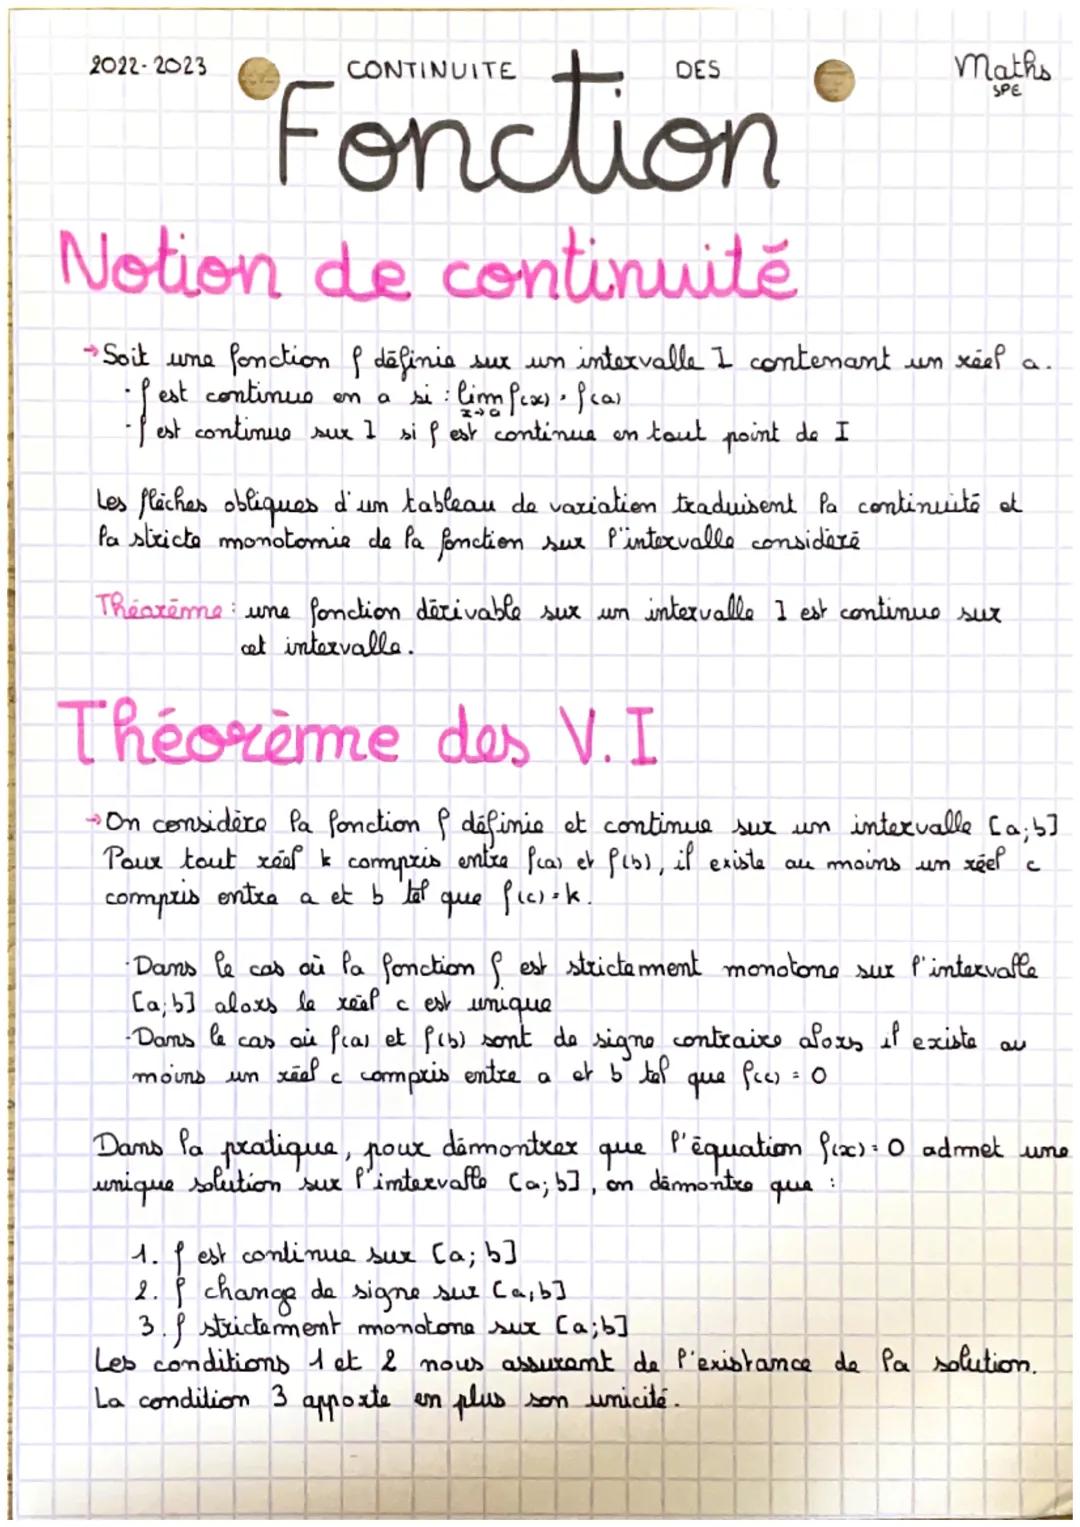 2022-2023 CONTINUITE DES Maths
SPE
Fonction
Notion de continuité
→ Soit une fonction f définie sur un intervalle I contenant un réel a.
· f est continue en a si : lim f(x) = f(a)
x→a
· f est continue sur I si f est continue en tout point de I
Les flèches obliques d'un tableau de variation traduisent la continuité et
la stricte monotomie de la fonction sur l'intervalle considéré
Théorème : une fonction dérivable sur un intervalle I est continue sur
cet intervalle.
Théorème des V.I
→ On considère la fonction f définie et continue sur un intervalle [a;b]
Pour tout réel k compris entre f(a) et f(b), il existe au moins un réel c
compris entre a et b tel que f(c) = k.
· Dans le cas où la fonction f est strictement monotone sur l'intervalle
[a;b] alors le réel c est unique
· Dans le cas où f(a) et f(b) sont de signe contraire alors il existe au
moins un réel c compris entre a et b tel que f(c) = 0
Dans la pratique, pour démontrer que l'équation f(x) = 0 admet une
unique solution sur l'intervalle [a;b], on démontre que :
1. f est continue sur [a; b]
2. f change de signe sur [a,b]
3. f strictement monotone sur [a;b]
Les conditions 1 et 2 nous assurent de l'existance de la solution.
La condition 3 apporte en plus son unicité.